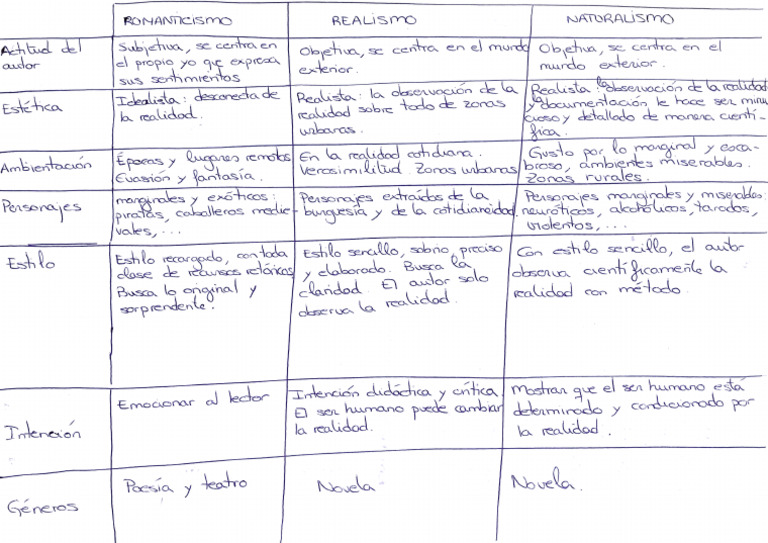 ROMANTICISMO
REALISMO
NATURALISMO
Actitud del
autor
Subjetiva, se centra en
el propio yo que expresa
sus sentimientos
Objetiva, se centra en el mundo
exterior.
Objetiva, se centra en el
mundo exterior.
Estética
Idealista: desconecta de
la realidad.
Realista: la observación de la
realidad sobre todo de zonas
urbanas.
Realista: la observación de la realidad
y documentación le hace ser minu
cioso y detallado de manera cientí-
fica.
Ambientación
Épocas y lugares remotos
Evasión y fantasía.
En la realidad cotidiana.
Verosimilitud. Zonas urbanas
Gusto por lo marginal y esca-
broso, ambientes miserables.
Zonas rurales.
Personajes
marginales y exóticos:
piratas, caballeros medie-
vales, ...
Personajes extraídos de la
burguesía y de la cotidianeidad
Personajes marginales y miserables:
neuróticos, alcohólicos, tarados,
violentos, ...
Estilo
Estilo recargado, con toda
clase de recursos retóricos
Busca lo original y
sorprendente.
Estilo sencillo, sobrio, preciso
y elaborado. Busca la
claridad. El autor solo
observa la realidad.
Con estilo sencillo, el autor
observa científicamente la
realidad con método.
Intención
Emocionar al lector
Intención didáctica y crítica.
El ser humano puede cambiar
la realidad.
Mostrar que el ser humano está
determinado y condicionado por
la realidad.
Géneros
Poesía y teatro
Novela
Novela.